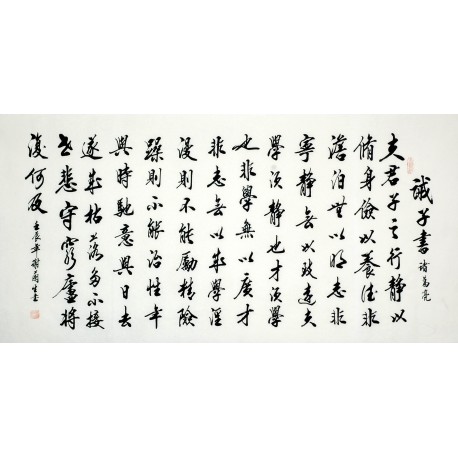 誡子書
諸葛亮
夫君子之行靜以
脩身儉以養德非
澹泊無以明志非
寧靜無以致遠夫
學須靜也才須學
也非學無以廣才
非志無以成學淫
漫則不能勵精險
躁則不能治性年
與時馳意與日去
遂成枯落多不接
世悲守窮廬將
復何及
壬辰年